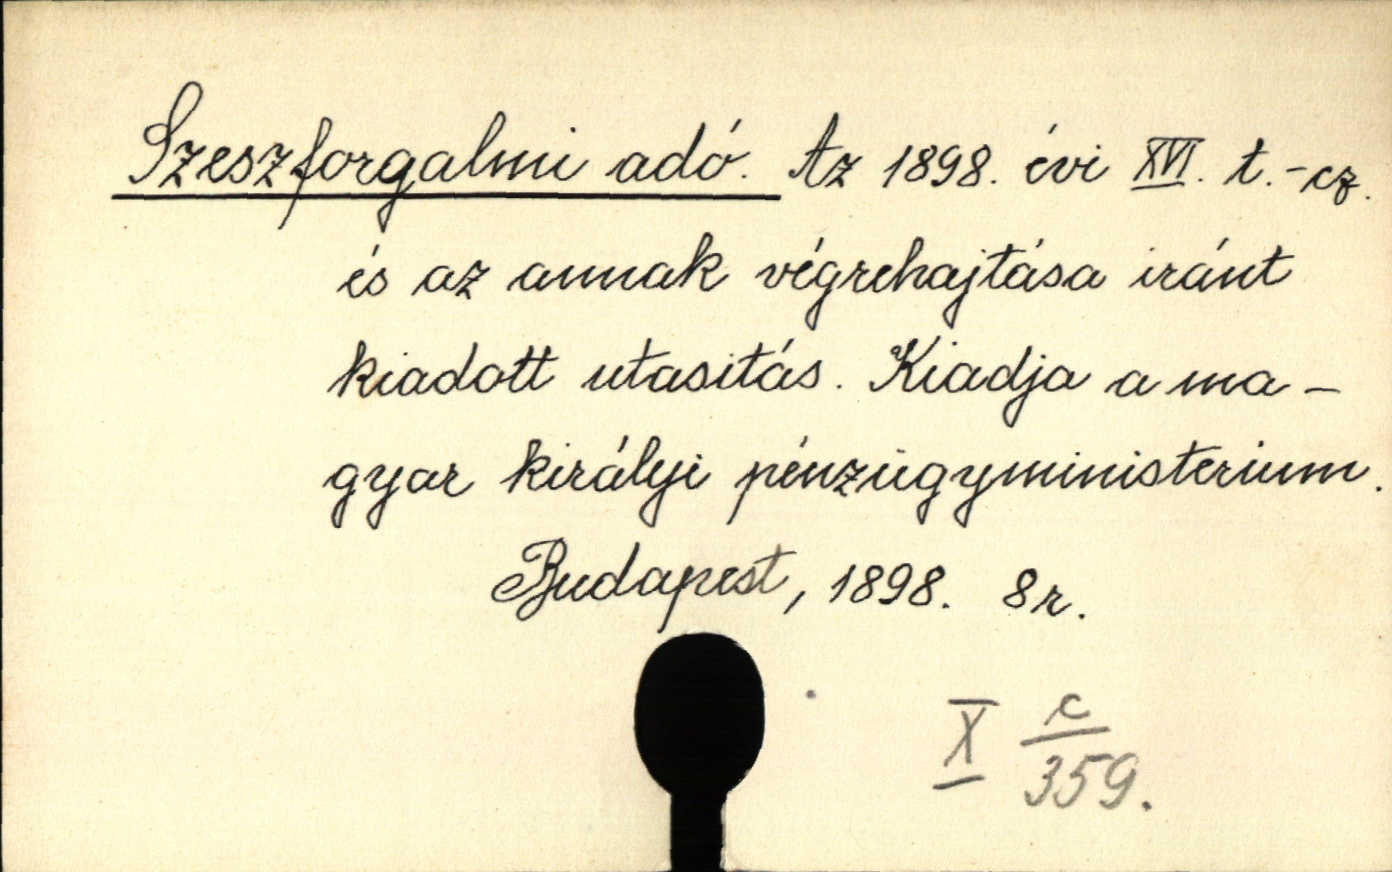 Szeszforgalmi adó. Az 1898. évi XVI. t.-cz.
és az annak végrehajtása iránt
kiadott utasitás. Kiadja a ma-
gyar királyi pénzügyministerium.
Budapest, 1898. 8r.
X c/359.